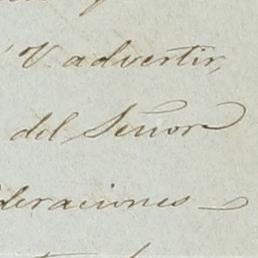 V. advertir,
del Señor
deraciones